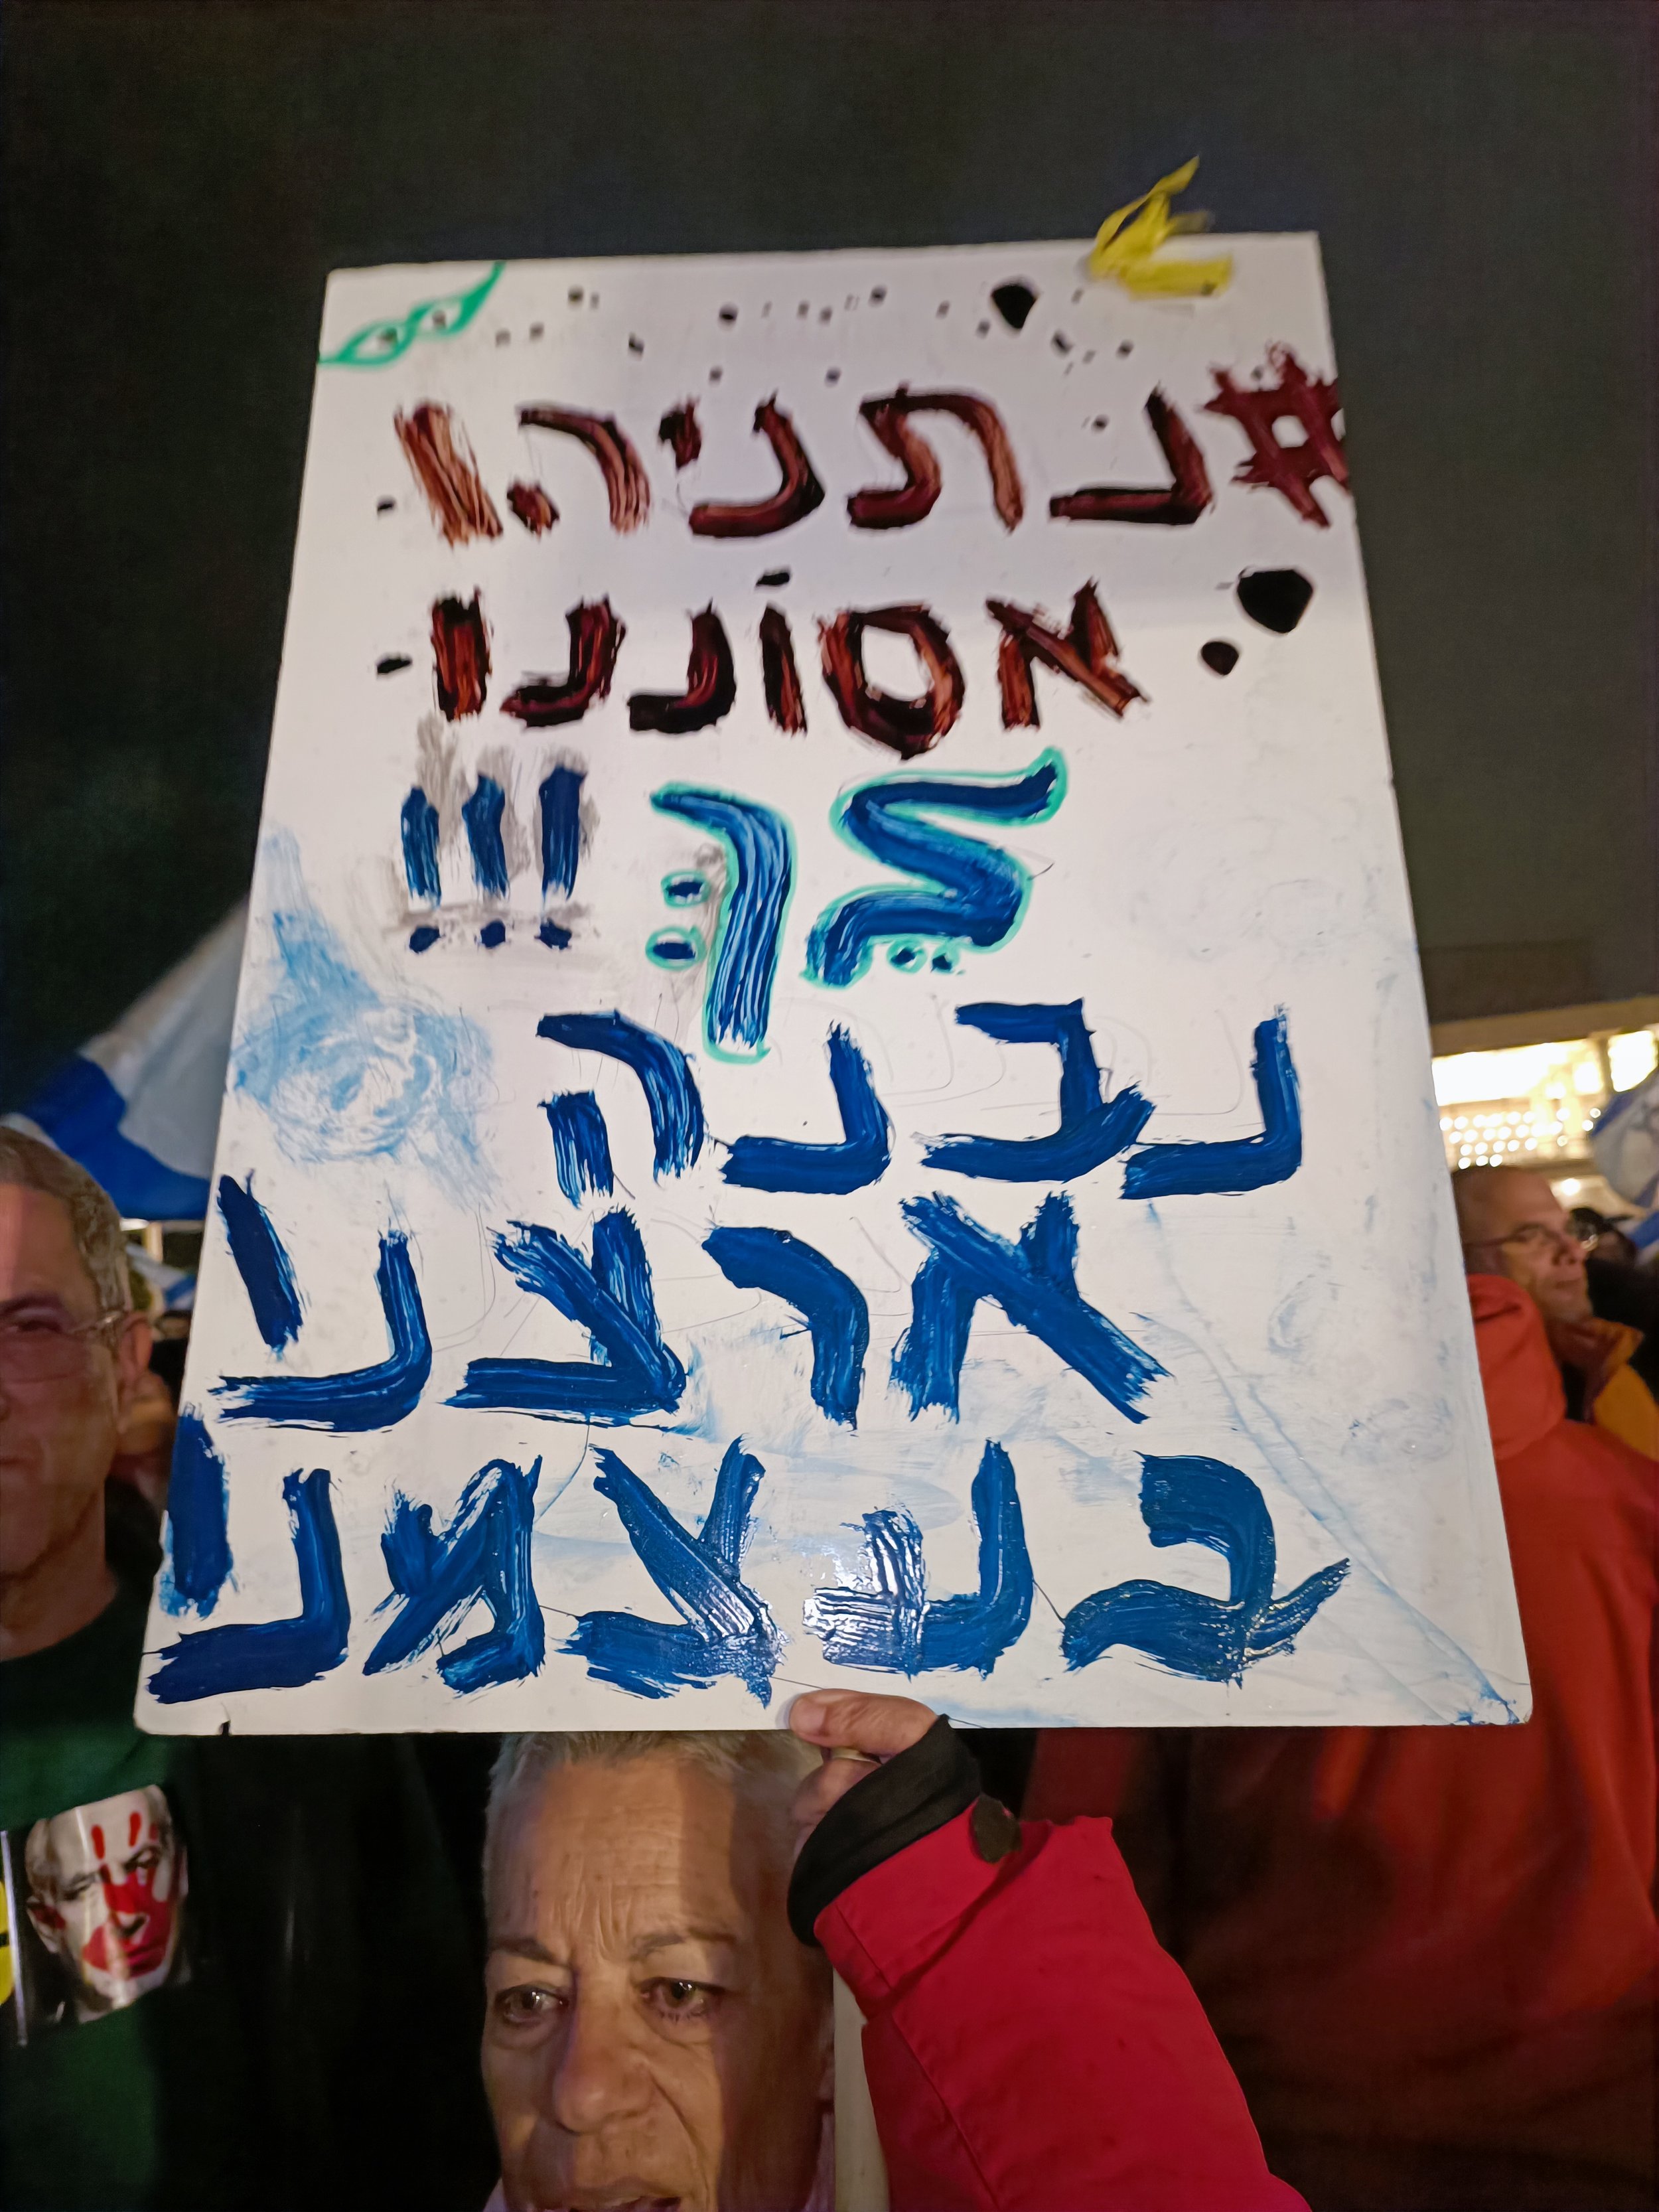 #נתניהו
אסוֹננו
לֵךְ!!!
נבנה
ארצנו
בעצמנו